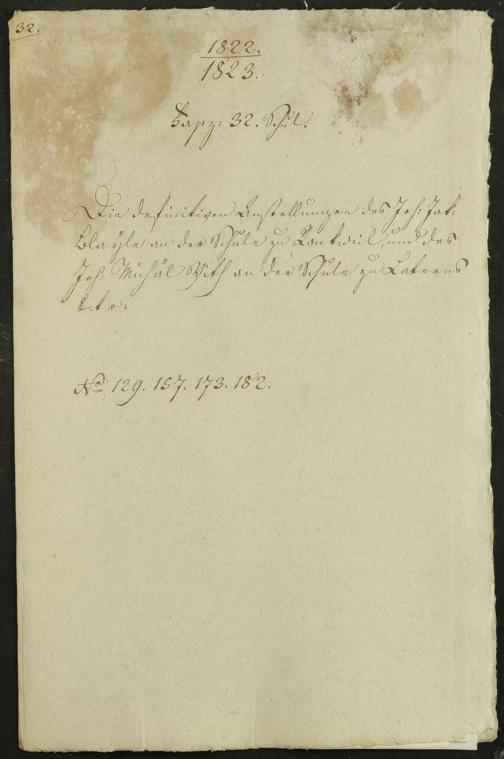 32.
1822.
1823.
Fasz: 32. Schul.
Die definitiven Anstellungen des Joh: Jak:
Blayle an der Schule zu Rankweil, und des
Joh. Michäl Vith an der Schule zu Laterns
betr:
No 129. 157. 173. 182.